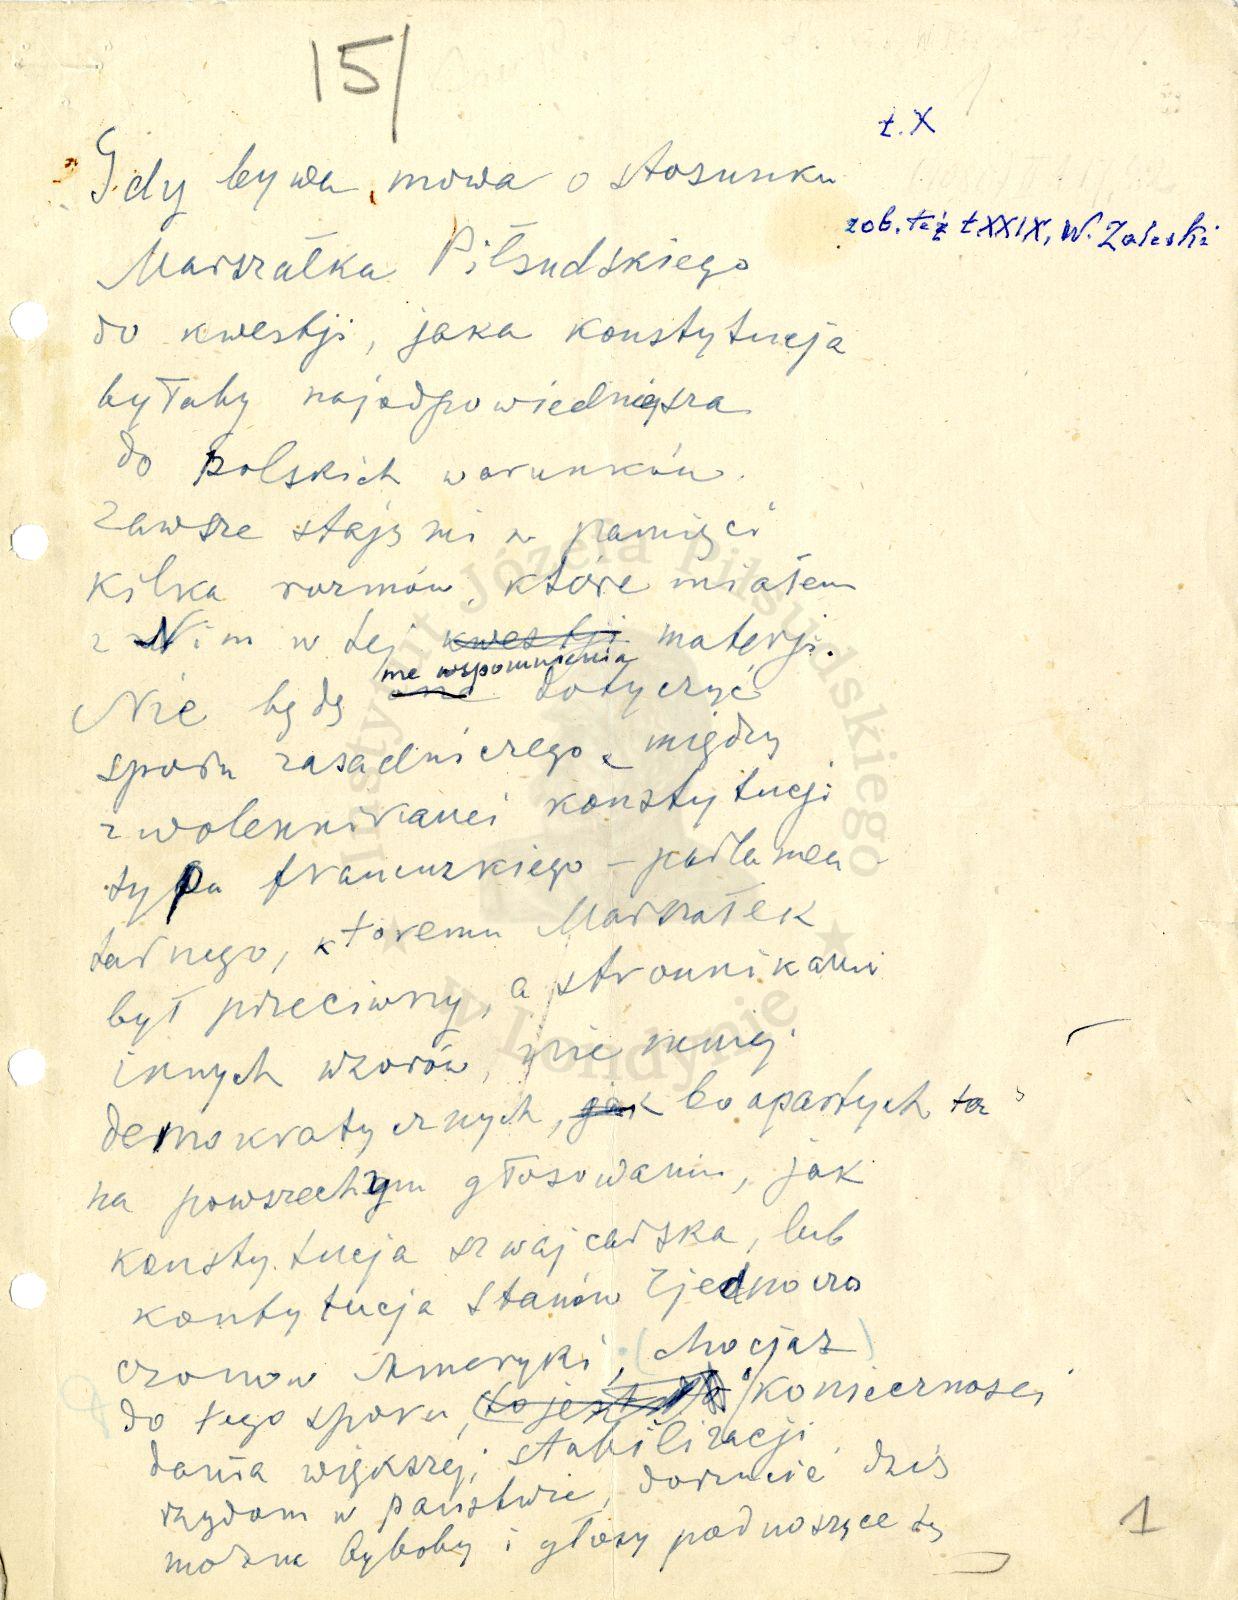 15/
t. X
zob. też t XXIX, W. Zaleski
Gdy bywa mowa o stosunku
Marszałka Piłsudskiego
do kwestji, jaka konstytucja
byłaby najodpowiedniejsza
do polskich warunków.
zawsze stają mi w pamięci
kilka rozmów, które miałem
z Nim w tej kwestji materji.
me wspomnienia
Nie będą dotyczyć
sporu zasadniczego między
zwolennikami konstytucji
typu francuzkiego – parlamen-
tarnego, któremu Marszałek
był przeciwny, a stronnikami
innych wzorów, nie mniej
demokratycznych, jak bo opartych też
na powszechnym głosowaniu, jak
konstytucja szwajcarska, lub
kontytucja Stanów Zjednocza
czonow Ameryki, (chocjaz)
do tego sporu, to jest konieczności
dania większej stabilizacji
rządom w państwie, dorzucić dziś
można byłoby i głosy podnoszące tę
1
Instytut Józefa Piłsudskiego
w Londynie